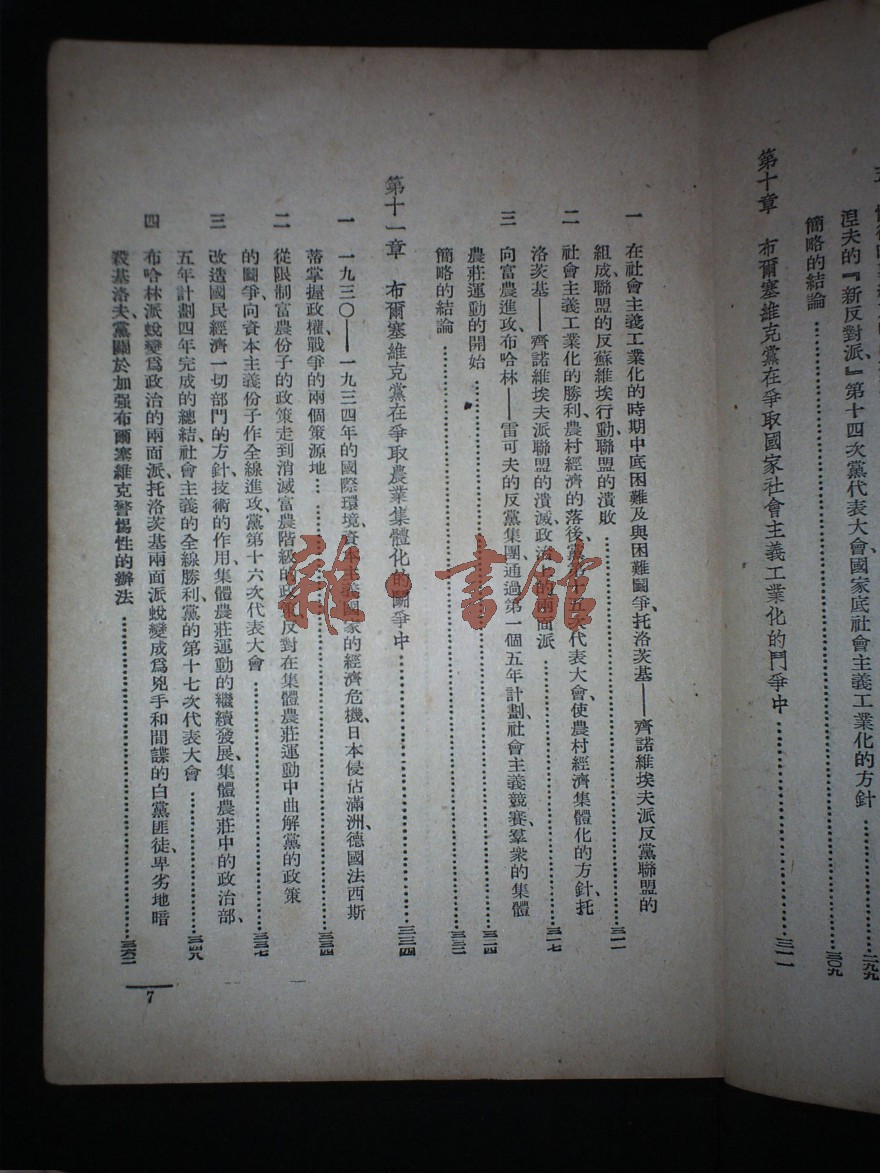 涅夫的『新反對派』、第十四次黨代表大會、國家底社會主義工業化的方針…………二九九
簡略的結論…………三〇九
第十章　布爾塞維克黨在爭取國家社會主義工業化的鬥爭中…………三一一
一　在社會主義工業化的時期中底困難及與困難鬪爭、托洛茨基——齊諾維埃夫派反黨聯盟的
組成、聯盟的反蘇維埃行動、聯盟的潰敗…………三一一
二　社會主義工業化的勝利、農村經濟的落後、黨第十五次代表大會、使農村經濟集體化的方針、托
洛茨基——齊諾維埃夫派聯盟的潰滅、政治上的兩面派…………三一七
三　向富農進攻、布哈林——雷可夫的反黨集團、通過第一個五年計劃、社會主義競賽、羣衆的集體
農莊運動的開始…………三二四
簡略的結論…………三三二
第十一章　布爾塞維克黨在爭取農業集體化的鬪爭中…………三三四
一　一九三〇——一九三四年的國際環境、資本主義國家的經濟危機、日本侵佔滿洲、德國法西斯
蒂掌握政權、戰爭的兩個策源地…………三三四
二　從限制富農份子的政策走到消滅富農階級的政策、反對在集體農莊運動中曲解黨的政策
的鬪爭、向資本主義份子作全線進攻、黨第十六次代表大會…………三三七
三　改造國民經濟一切部門的方針、技術的作用、集體農莊運動的繼續發展、集體農莊中的政治部、
五年計劃四年完成的總結、社會主義的全線勝利、黨的第十七次代表大會…………三四八
四　布哈林派蛻變爲政治的兩面派、托洛茨基兩面派蛻變成爲兇手和間諜的白黨匪徒、卑劣地暗
殺基洛夫、黨關於加強布爾塞維克警惕性的辦法…………三六二
7
雜·書館